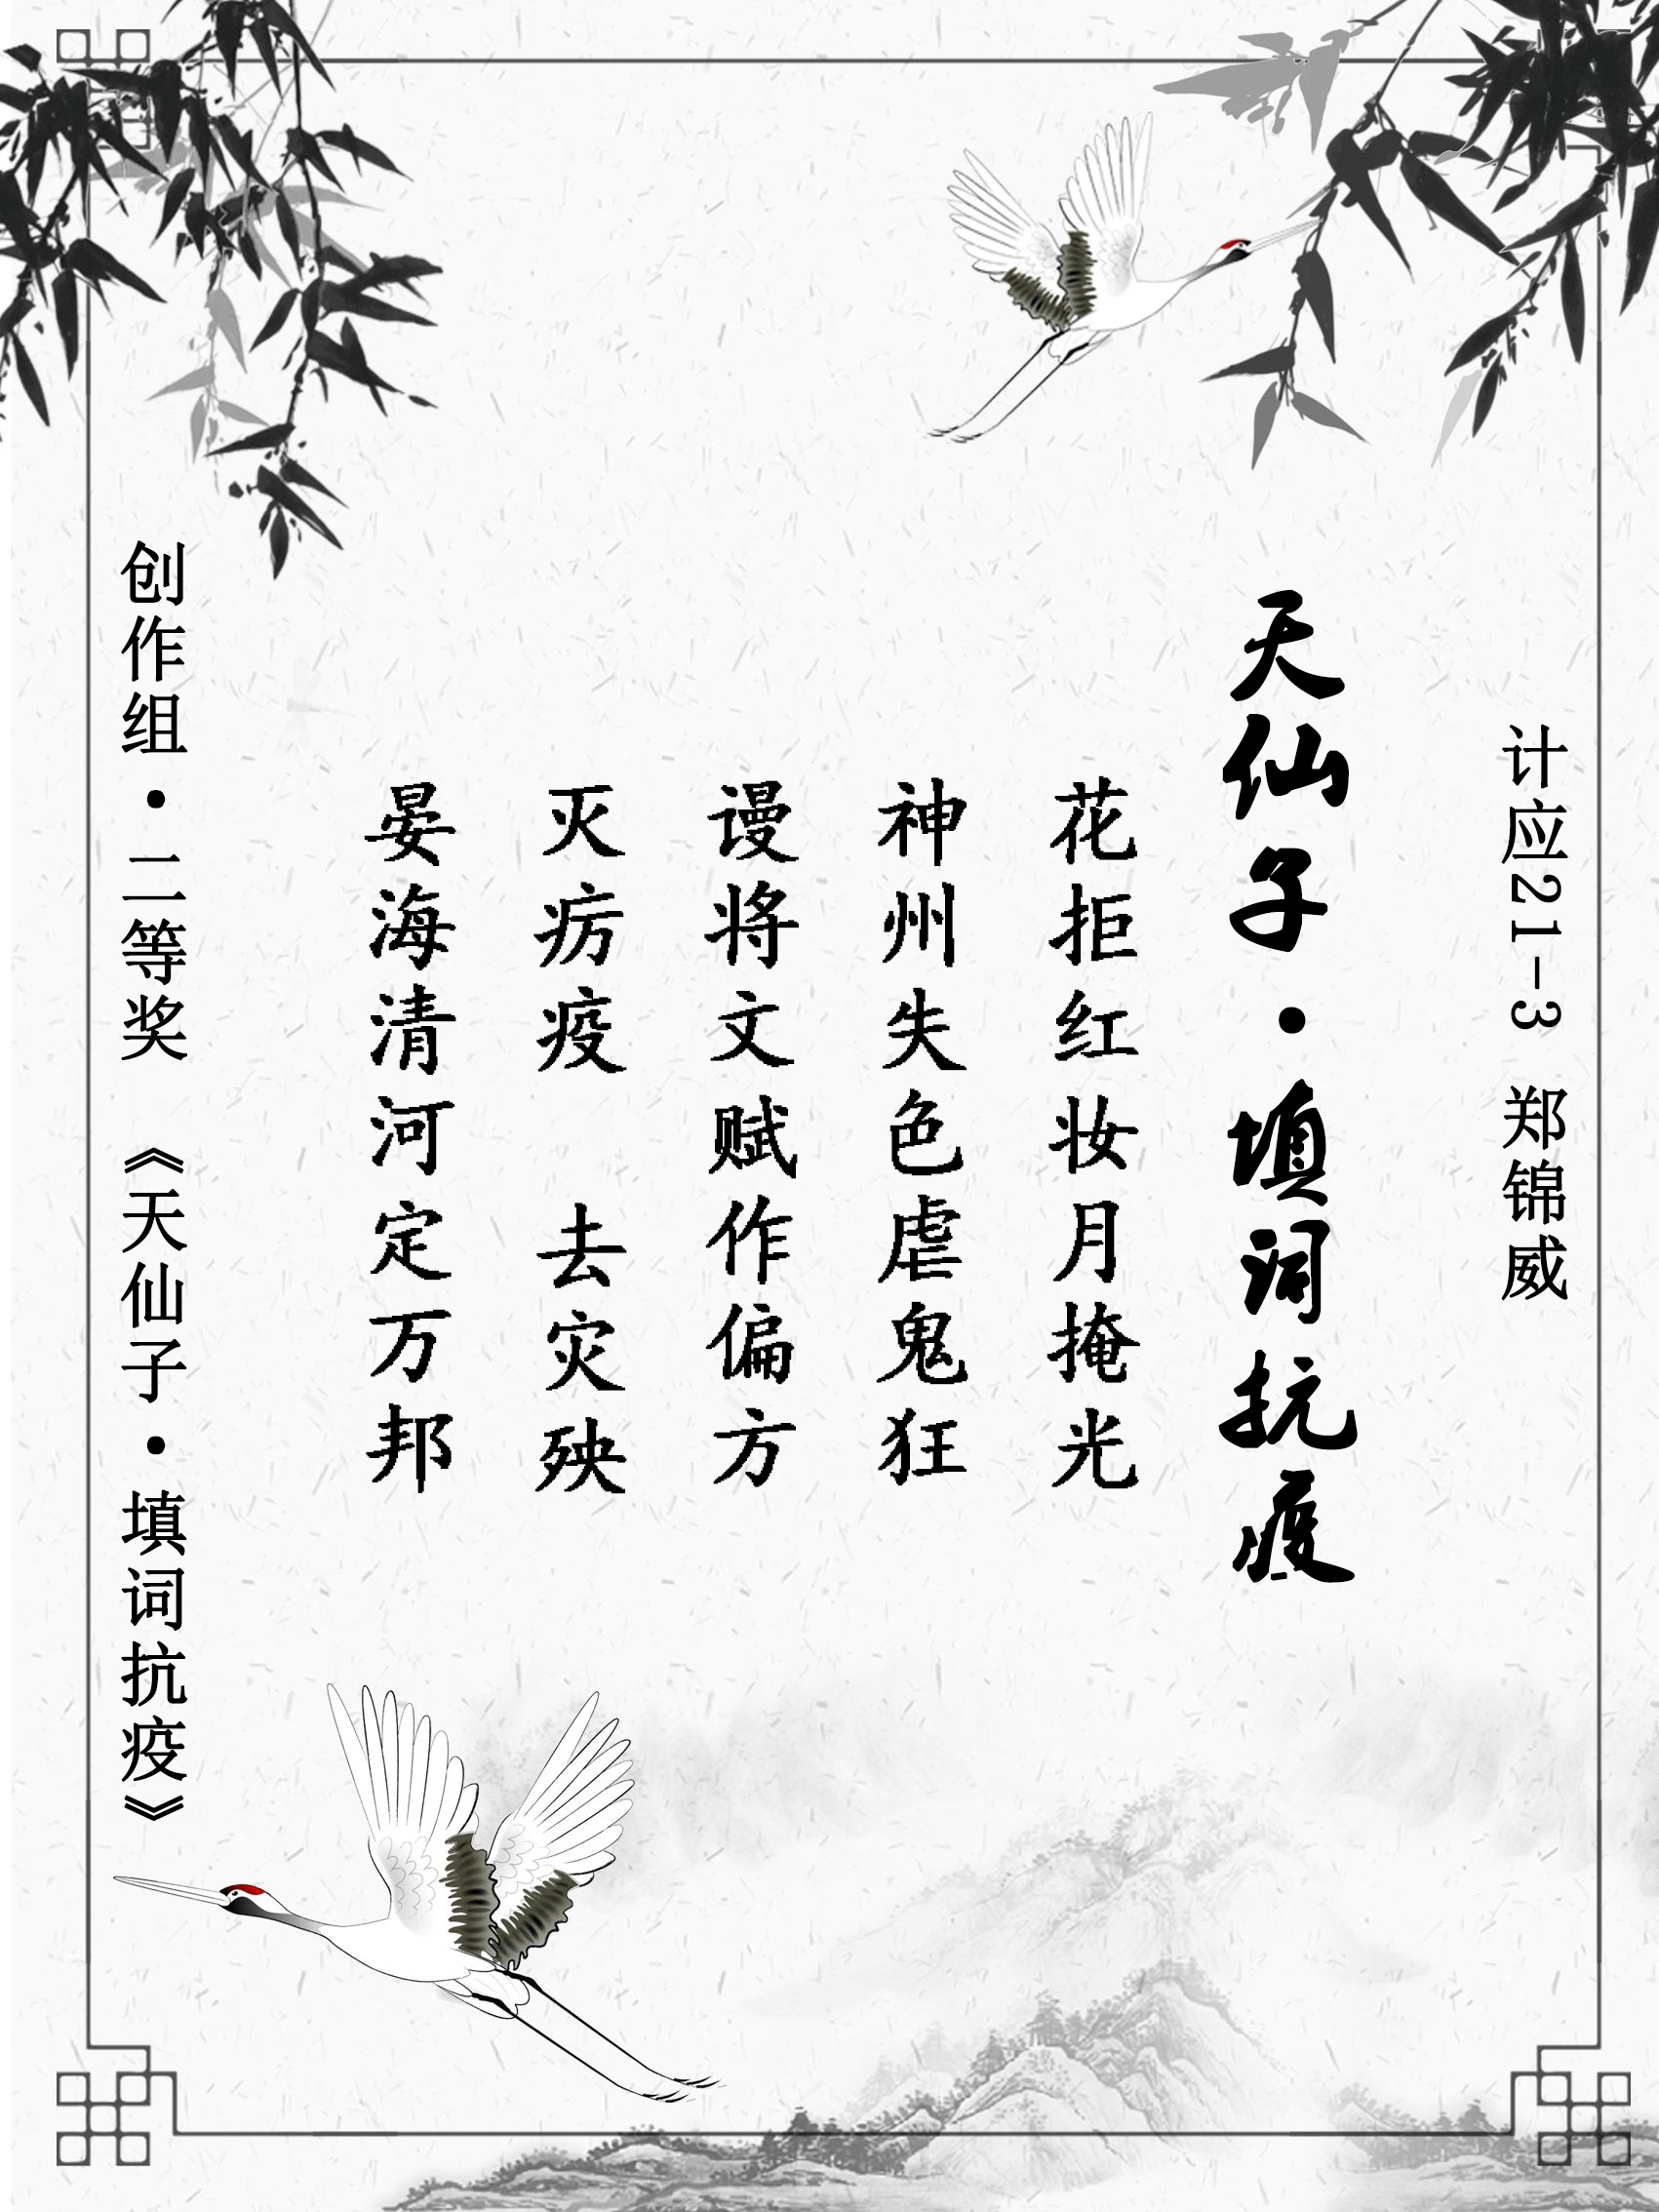 计应21-3 郑锦威
天仙子·填词抗疫
花拒红妆月掩光
神州失色虐鬼狂
谩将文赋作偏方
灭疠疫 去灾殃
晏海清河定万邦
创作组·二等奖 《天仙子·填词抗疫》